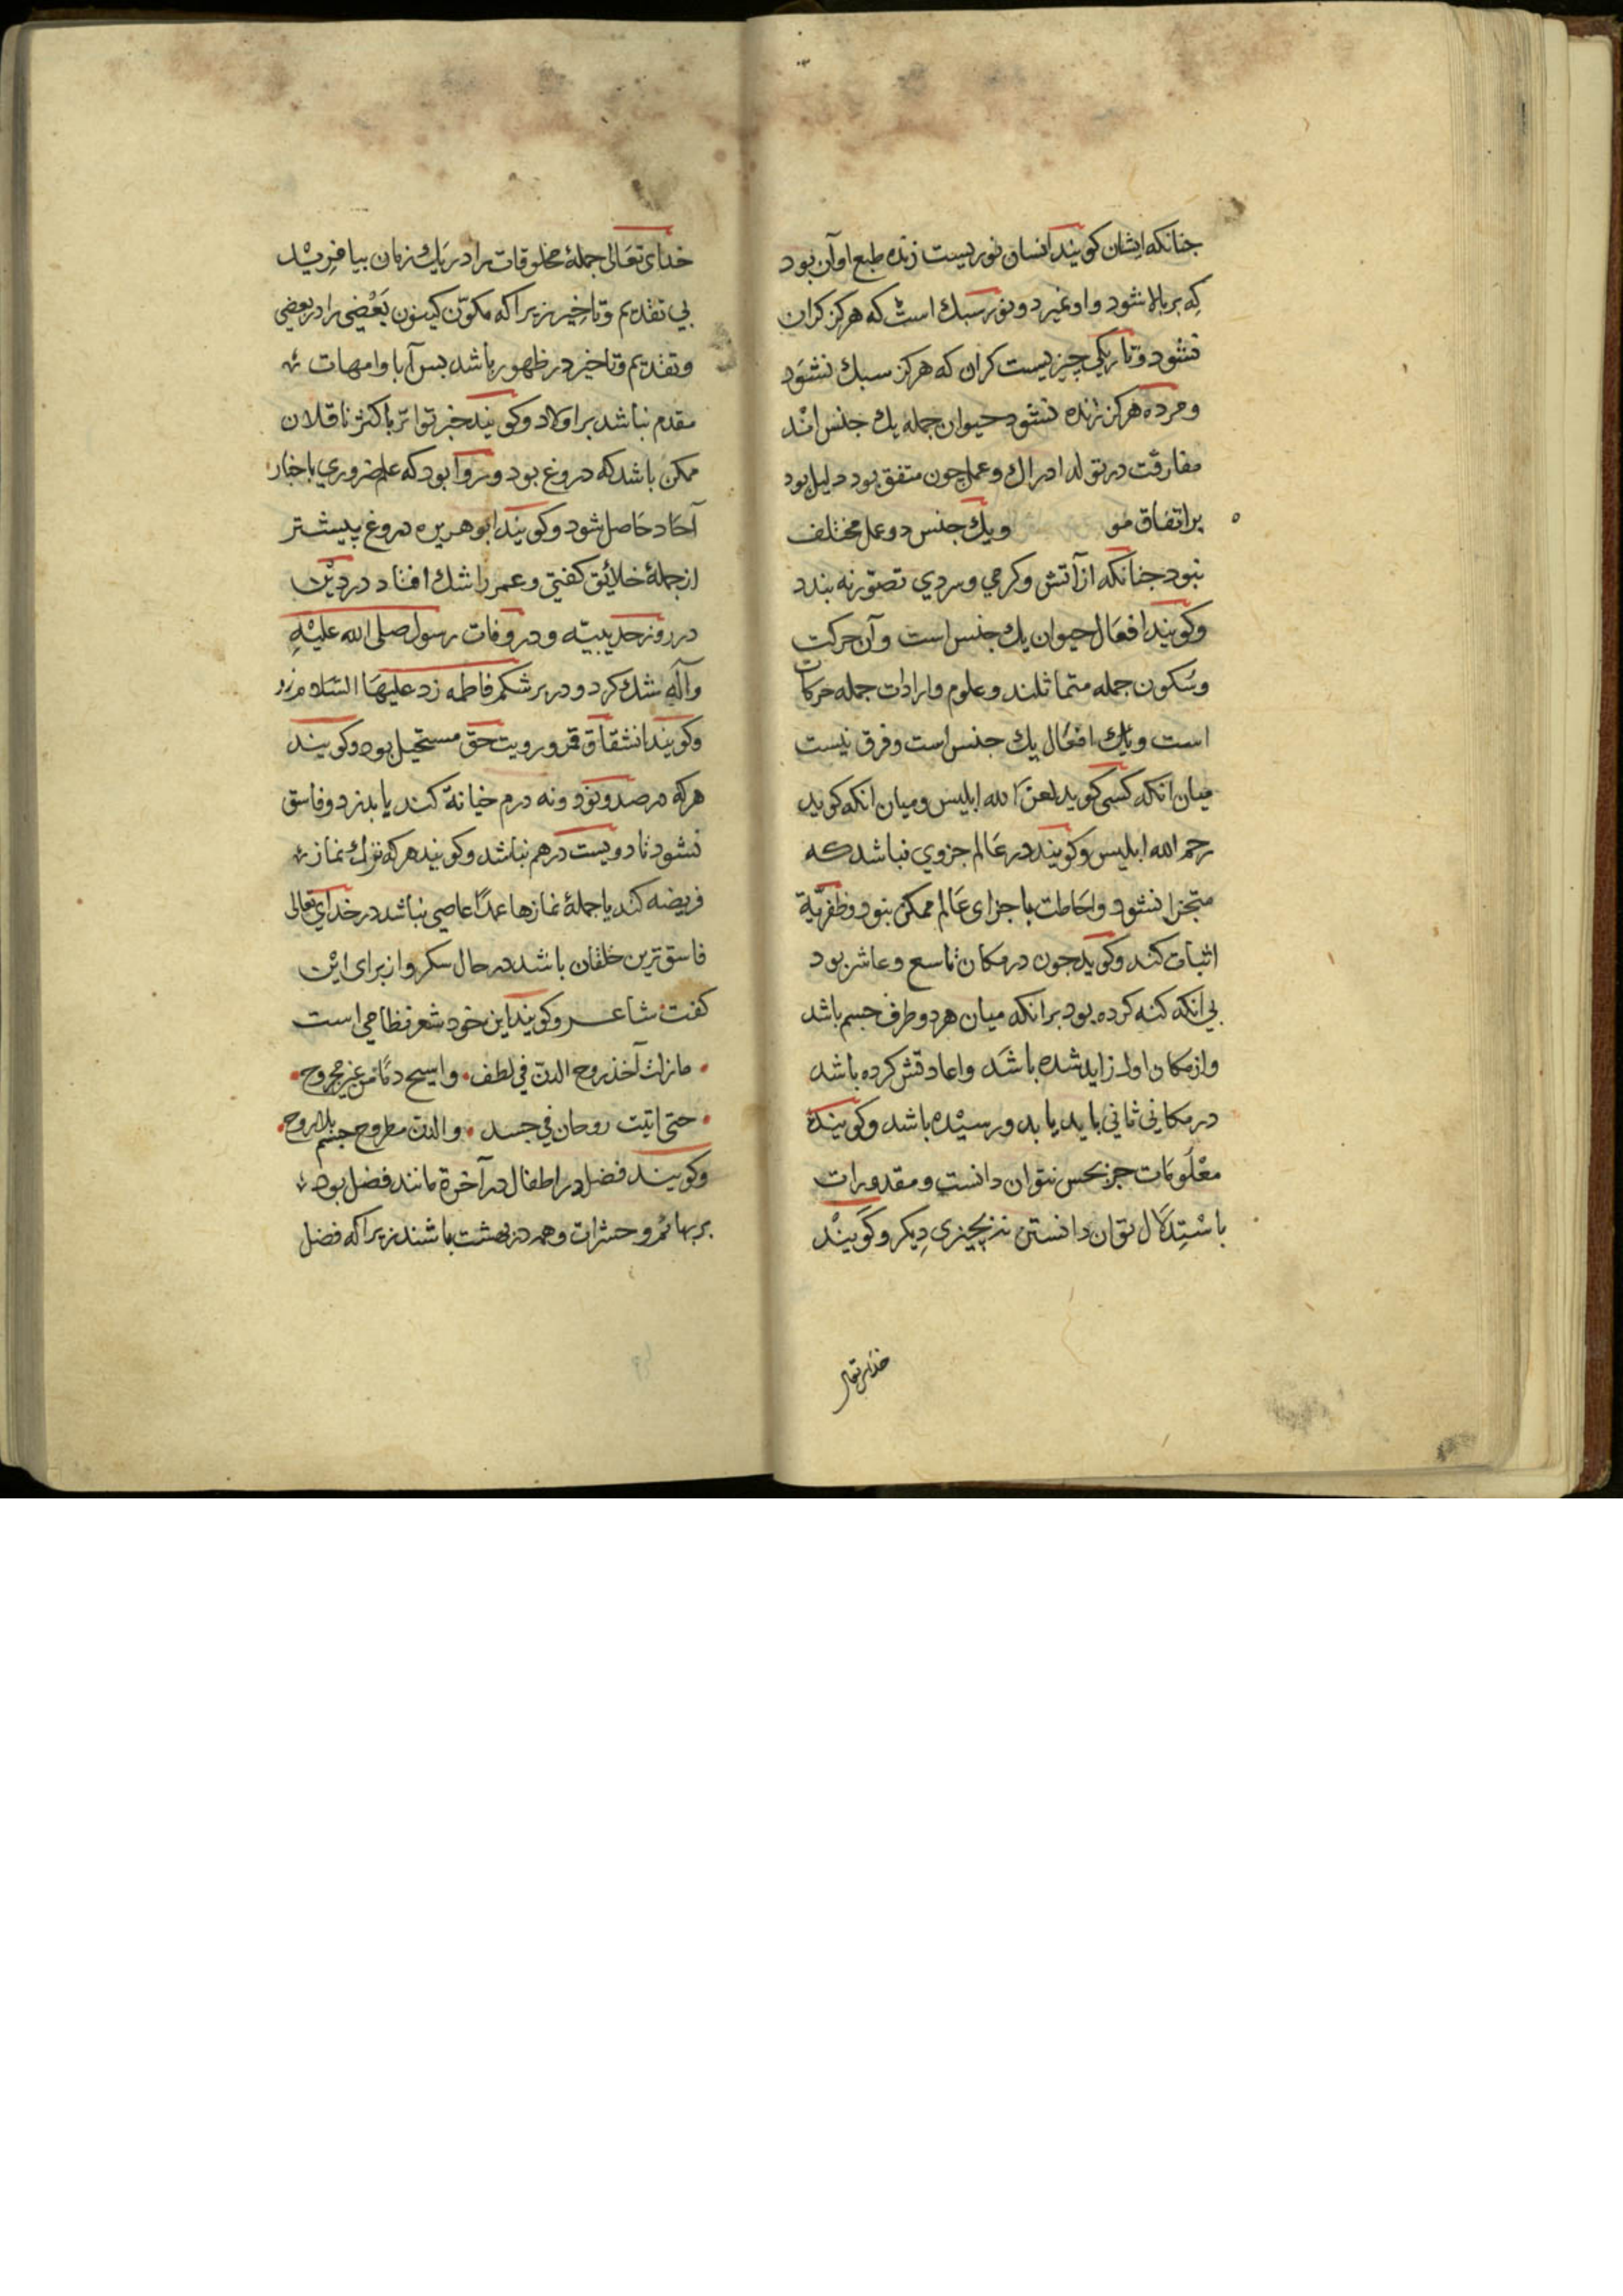 جنانکه ایشان کویند انسان نوریست زنده طبع او آن بود
که بر بالا شود و او نمیرد و نور سبک است که هرکز کران
نشود و تاریکی چیزیست کران که هرکز سبک نشود
و مرده هرکز زنده نشود حیوان جمله یک جنس اند
مفارقت در تولد ادراک و عمل چون متفق بود دلیل بود
بر اتفاق و یک جنس دو عمل مختلف
نبود جنانکه از آتش و کرمی و سردی تصور نه بندد
و کویند افعال حیوان یک جنس است و آن حرکت
و سکون جمله متماثلند و علوم و ارادات جمله حرکات
است و یک افعال یک جنس است و فرق نیست
میان انکه کسی کوید لعن الله ابلیس و میان انکه کوید
رحم الله ابلیس و کویند در عالم جزوی نباشد که
متجزا نشود و احاطت باجزای عالم ممکن بنود و ظفریه
اثبات کند و کوید جون در مکان تاسع و عاشر بود
بی انکه کنه کرده بود بر انکه میان هر دو طرف جسم باشد
و از مکان اول زاید شده باشد و اعادتش کرده باشد
در مکانی ثانی باید یا بد و رسیده باشد و کویند
معلومات جز بحس نتوان دانست و مقدورات
باستدلال توان دانستن نه بچیزی دیکر و کویند
خدای تعالی
خدای تعالی جملهٔ مخلوقات را در یک زمان بیافرید
بی تقدیم و تاخیر زیراکه مکون کینون بعضی را در بعضی
و تقدیم و تاخیر در ظهور باشد بس آبا و امهات
مقدم نباشد بر اولاد و کویند خبر تواتر با کثرت ناقلان
ممکن باشد که دروغ بود و روا بود که علم ضروری باخبار
آحاد حاصل شود و کویند ابو هریره دروغ بیشتر
از جملهٔ خلائق کفتی و عمر را شک افتاد در دین
در روز حدیبیّه و در وفات رسول صلی الله علیه
وآله شک کرد و در بر شکم فاطمه زد علیها السلام
و کویند انشقاق قمر و رویت حق مستحیل بود و کویند
هرکه در صد و نود و نه درم خیانة کند یا بدزد و فاسق
نشود تا دویست درهم نباشد و کویند هرکه ترک نماز
فریضه کند یا جملهٔ نمازها عمدًا عاصی نباشد در خدای تعالی
فاسق ترین خلقان باشد در حال سکر و از برای این
کفت شاعر و کویند این خود شعر نظامی است
ما زلت آخذ روح الدن فی لطف و اسیح دمًا من غیر مجروح
حتی اتیت روحان فی جسد و الدن مطروح جسم بلا روح
و کویند فضل در اطفال در آخرة مانند فضل بود
بر بهائم و حشرات و همه در بهشت باشند زیراکه فضل